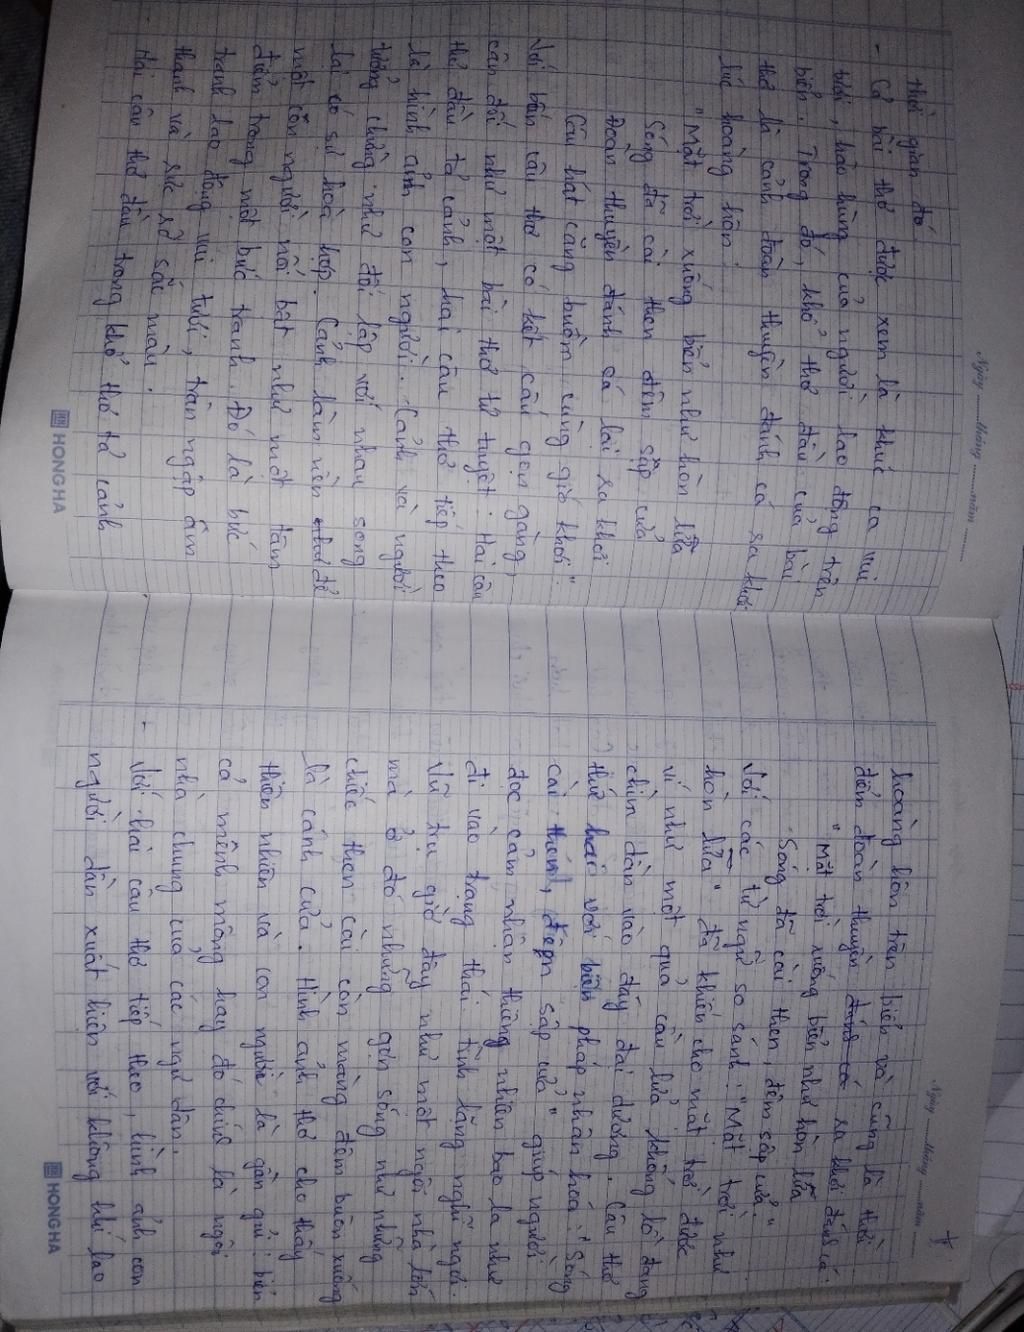 Ngày ...... tháng ...... năm ......
thời gian đó.
- Cả bài thơ được xem là khúc ca vui
tươi, hào hùng của người lao động trên
biển. Trong đó, khổ thơ đầu của bài
thơ là cảnh đoàn thuyền đánh cá ra khơi
lúc hoàng hôn:
"Mặt trời xuống biển như hòn lửa
Sóng đã cài then đêm sập cửa
Đoàn thuyền đánh cá lại ra khơi
Câu hát căng buồm cùng gió khơi".
Với bốn câu thơ có kết cấu gọn gàng,
cân đối như một bài thơ tứ tuyệt. Hai câu
thơ đầu tả cảnh, hai câu thơ tiếp theo
là hình ảnh con người. Cảnh và người
tưởng chừng như đối lập với nhau song
lại có sự hoà hợp. Cảnh làm nền để
một con người nổi bật như một tâm
điểm trong một bức tranh. Đó là bức
tranh lao động vui tươi, tràn ngập âm
thanh và rực rỡ sắc màu.
Hai câu thơ đầu trong khổ thơ tả cảnh
HONG HA
Ngày ...... tháng ...... năm ......
hoàng hôn trên biển và cũng là thời
điểm đoàn thuyền đánh cá ra khơi đánh cá:
"Mặt trời xuống biển như hòn lửa
Sóng đã cài then, đêm sập cửa."
Với các từ ngữ so sánh: "Mặt trời như
hòn lửa" đã khiến cho mặt trời được
ví như một quả cầu lửa khổng lồ đang
chìm dần vào đáy đại dương. Câu thơ
thứ hai với biện pháp nhân hoá: "Sóng
cài then, đêm sập cửa" giúp người
đọc cảm nhận thiên nhiên bao la như
đi vào trạng thái tĩnh lặng nghỉ ngơi.
Vũ trụ giờ đây như một ngôi nhà lớn
mà ở đó những gợn sóng như những
chiếc then cài còn màng đêm buôn xuống
là cánh cửa. Hình ảnh thơ cho thấy
thiên nhiên và con người là gần gũi: biển
cả mênh mông hay đó chính là ngôi
nhà chung của các ngư dân.
- Với hai câu thơ tiếp theo, hình ảnh con
người dân xuất hiện với không khí lao
HONG HA